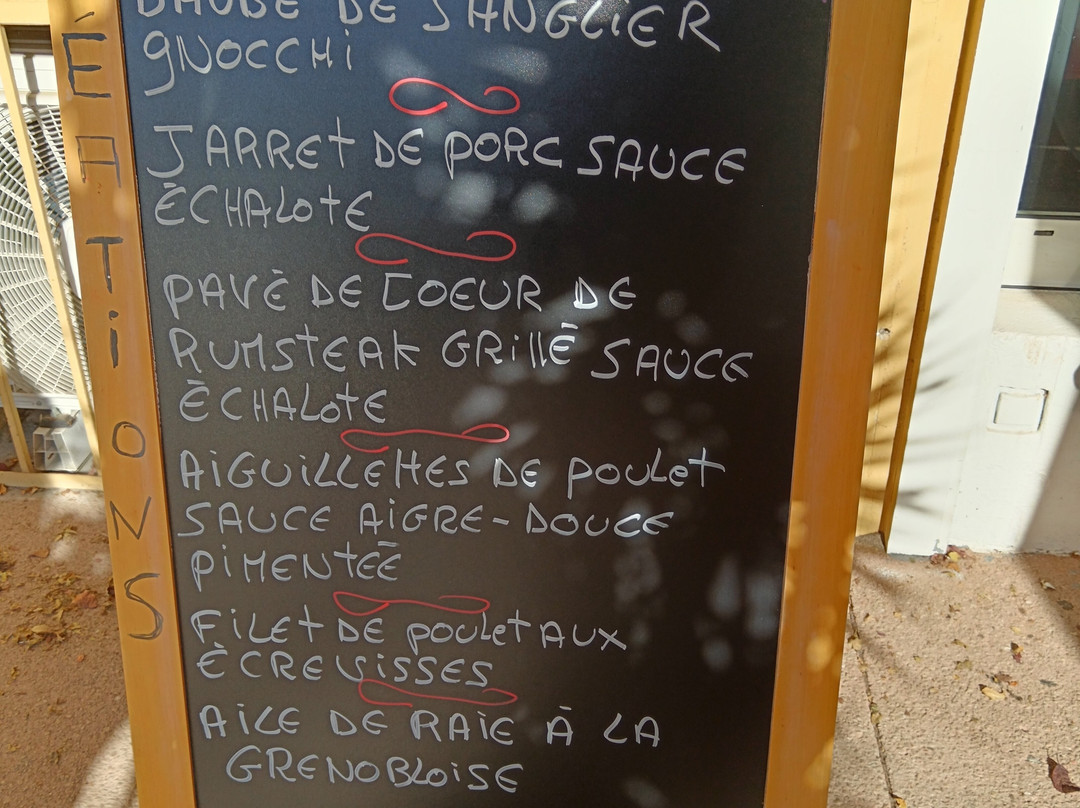 DAUBE DE SANGLIER
GNOCCHi
JARRET DE PORC SAUCE
ÉCHALOTE
PAVÉ DE COEUR DE
RUMSTEAK GRiLLÉ SAUCE
ÉCHALOTE
AiGUiLLETTES DE POULET
SAUCE AiGRE-DOUCE
PiMENTÉE
FiLET DE POULET AUX
ÉCREViSSES
AiLE DE RAiE À LA
GRENOBLOiSE
ÉATiONS